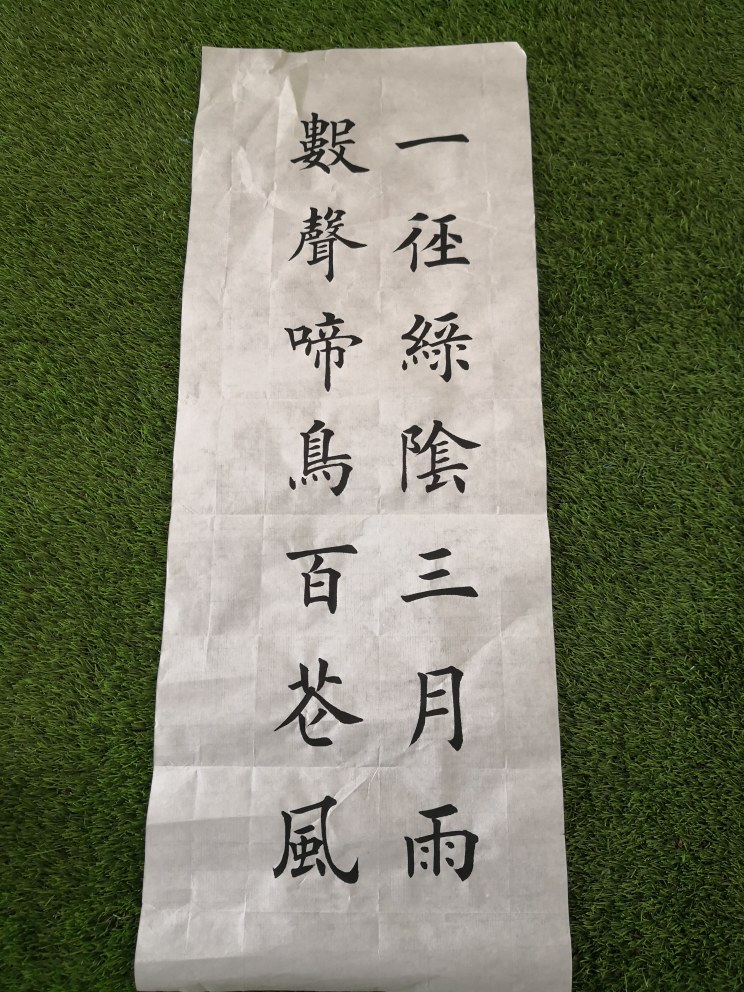 一徑綠陰三月雨
數聲啼鳥百花風